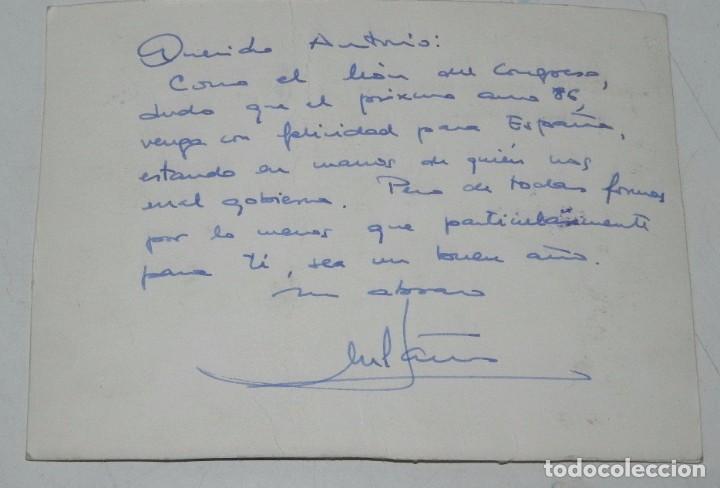 Querido Antonio:
Como el león del Congreso,
dudo que el próximo año 86,
venga con felicidad para España,
estando en manos de quién nos
en el gobierno. Pero de todas formas
por lo menos que particularmente
para ti, sea un buen año.
Un abrazo
todocoleccion.net